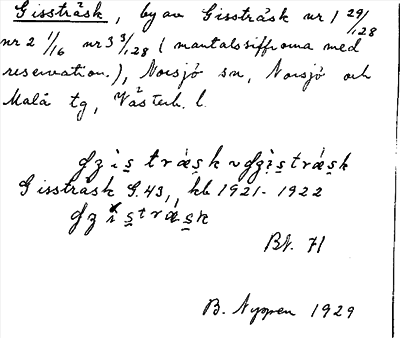 Gissträsk, by av Gissträsk nr 1 29/128
nr 2 1/16 nr 3 3/128 (mantalssiffrorna med
reservation.), Norsjö sn, Norsjö och
Malå tg, Västerb. l.
Gissträsk G. 43, kb 1921-1922
Bl. 71
B. Nyppen 1929